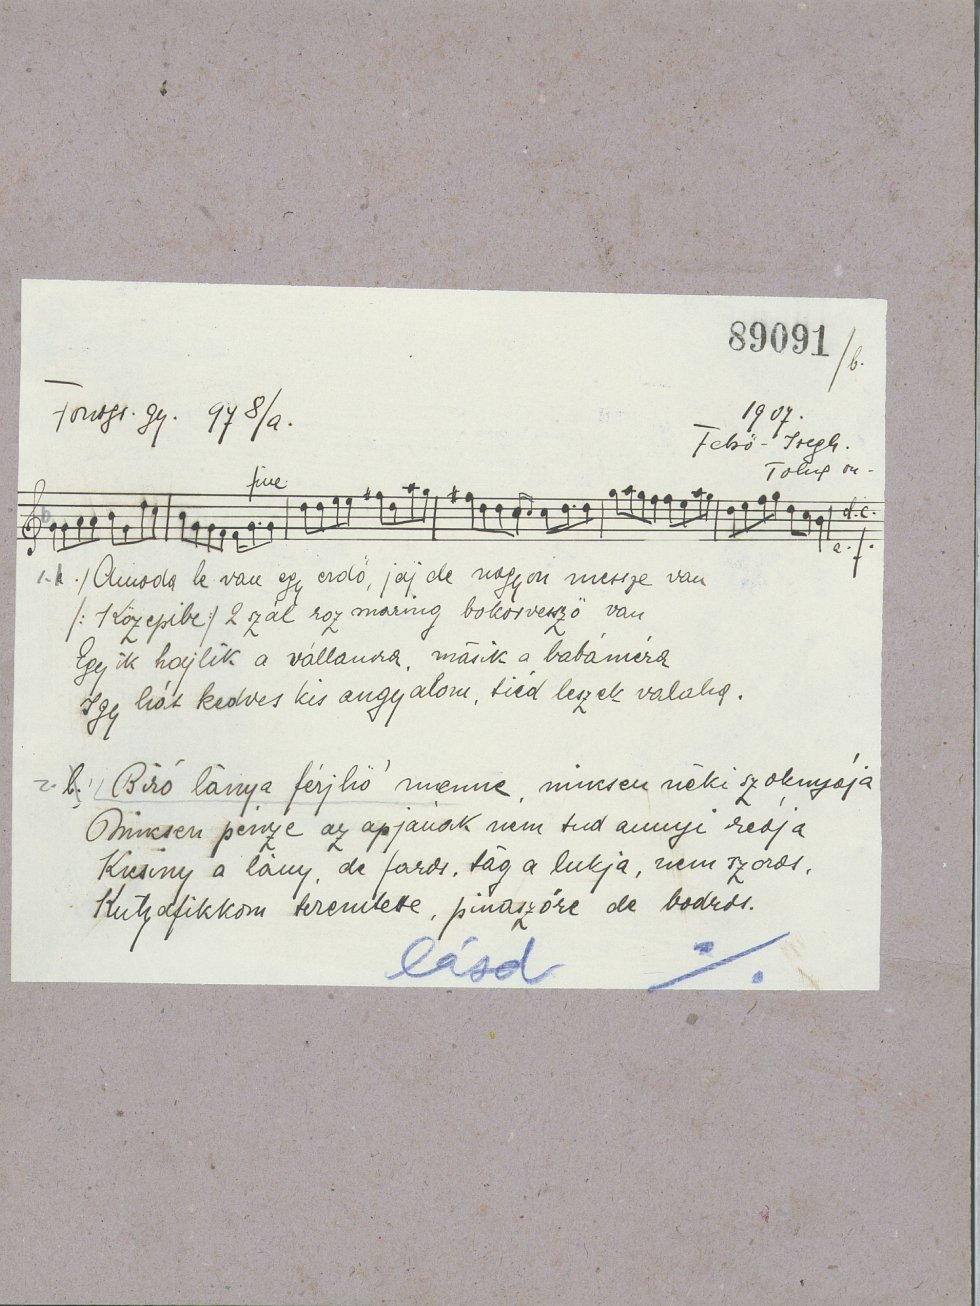 89091
/b.
Fonogr. gy. 978/a.
1907.
Felső-Iregh.
Tolna m.
fine
d. c.
a. f.
1. a./ Amoda le van egy erdő, jaj de nagyon messze van
/: Közepibe :/ 2 szál rozmaring bokorvessző van
Egyik hajlik a vállamra, másik a babáméra
Igy hát kedves kis angyalom, tiéd leszek valaha.
2. b. Biró lánya férjhö' menne, ninksen néki szoknyája
Ninksen pénze az apjának nem tud annyi reája
Kicsiny a lány, de faros, tág a lukja, nem szoros,
Kutyafikkom teremtette, pinaszőre de bodros.
lásd ·/.